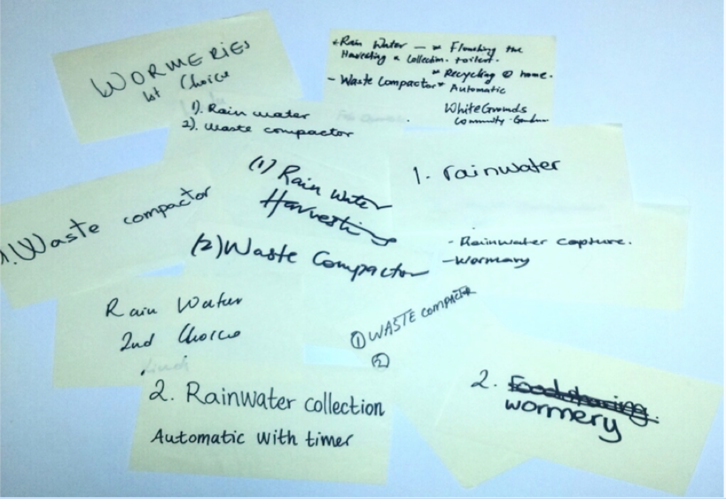 WORMERIES
1st Choice
Rain Water — Flouching the
Harvesting & Collection. toilent.
* Recycling @ home.
- Waste Compactor * Automatic
WhiteGrounds
Community Garden
1). Rain water
2). Waste compactor
(1) Rain Water
Harvesting
(2) Waste Compactor
1. rainwater
1. Waste compactor
- Rainwater capture.
- Wormary
Rain Water
2nd Choice
① WASTE COMPACTOR
②
2. Rainwater collection
Automatic with timer
2. Foodsharing.
wormery